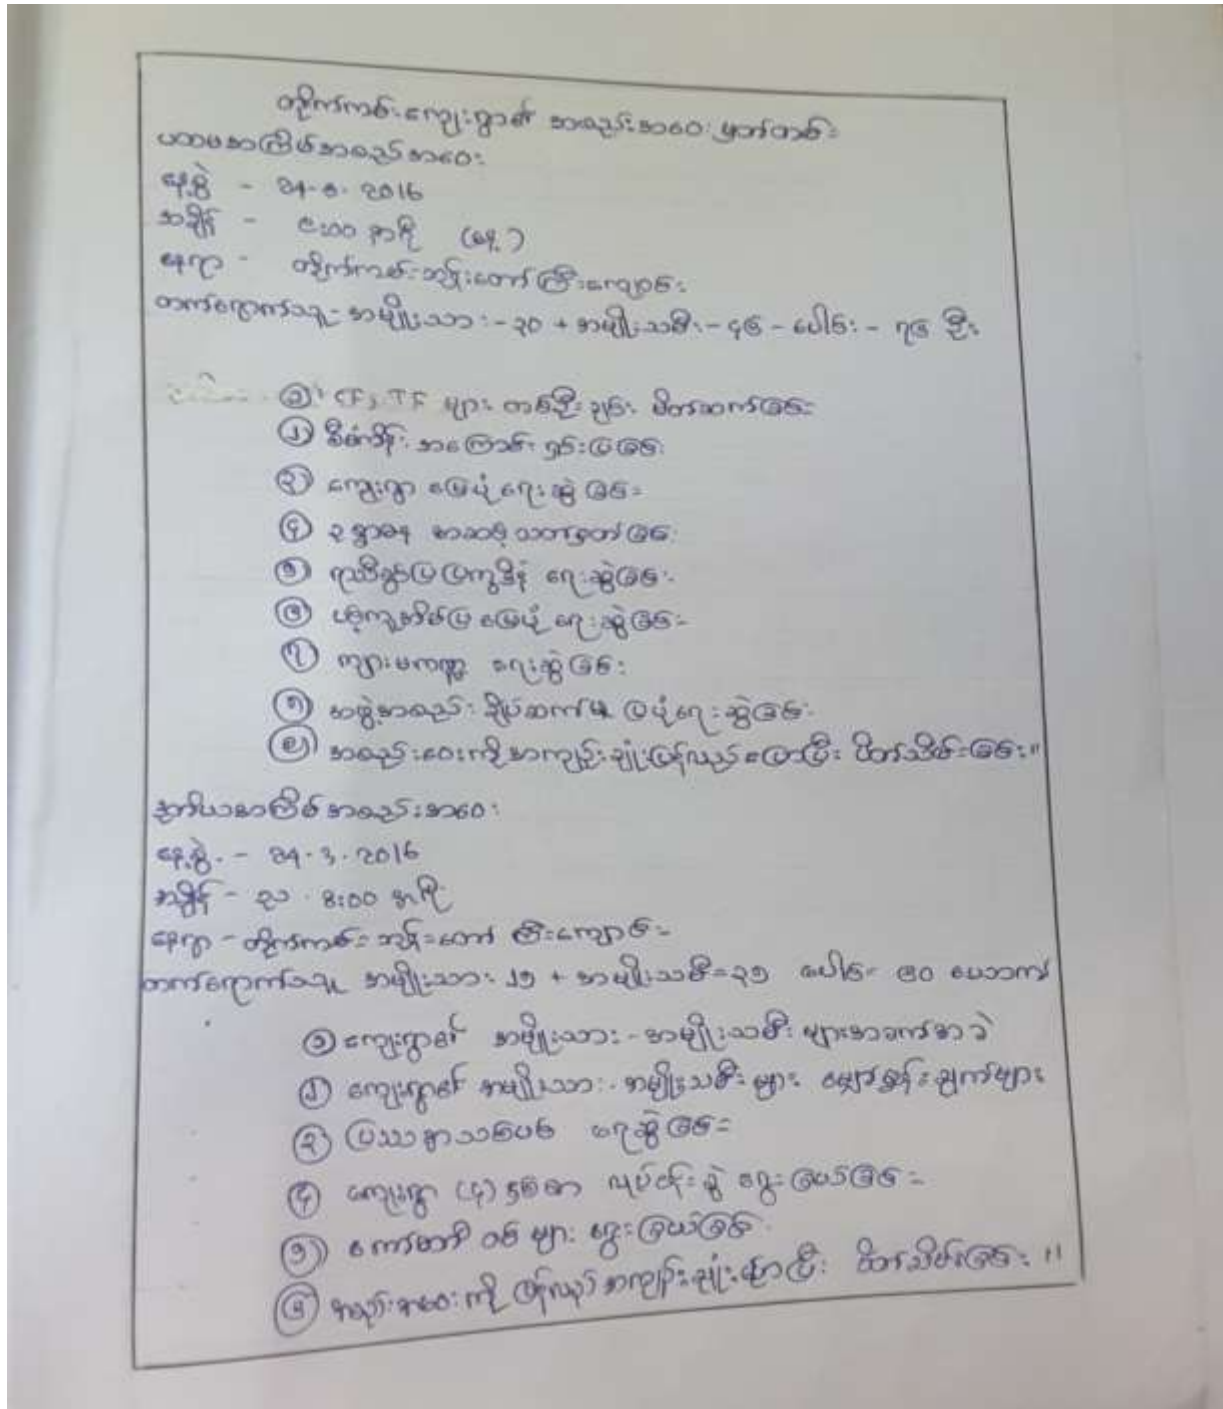 တိုက်ကမ်းကျေးရွာ၏ အစည်းအဝေး မှတ်တမ်း
ပထမအကြိမ်အစည်းအဝေး
နေ့စွဲ - 24-3-2016
အချိန် - ၉:၀၀ နာရီ (နေ့)
နေရာ - တိုက်ကမ်းဘုန်းတော်ကြီးကျောင်း
တက်ရောက်သူ - အမျိုးသား - ၃၀ + အမျိုးသမီး - ၄၆ - ပေါင်း - ၇၆ ဦး
၁ CF, TF များ တစ်ဦးချင်း မိတ်ဆက်ခြင်း
၂ စီမံကိန်း အကြောင်း ရှင်းပြခြင်း
၃ ကျေးရွာ မြေပုံ ရေးဆွဲခြင်း
၄ ဥစ္စာဓန အဆင့် သတ်မှတ်ခြင်း
၅ ရာသီခွင်ပြ ပြက္ခဒိန် ရေးဆွဲခြင်း
၆ ပြမြေပုံ ရေးဆွဲခြင်း
၇ ကျား၊မကဏ္ဍ ရေးဆွဲခြင်း
၈ အဖွဲ့အစည်း ချိပ်ဆက်မှု ပြပုံရေးဆွဲခြင်း
၉ အစည်းဝေးကို အကျဉ်းချုံးပြန်လည်ပြောပြီး ပိတ်သိမ်းခြင်း။
ဒုတိယအကြိမ်အစည်းအဝေး
နေ့စွဲ - 24.3.2016
အချိန် - ည 8:00 နာရီ
နေရာ - တိုက်ကမ်း ဘုန်းတော် ကြီးကျောင်း
တက်ရောက်သူ အမျိုးသား ၂၅ + အမျိုးသမီး ၃၅ ပေါင်း ၆၀ ယောက်
၁ ကျေးရွာ၏ အမျိုးသား - အမျိုးသမီး များအခက်အခဲ
၂ ကျေးရွာ၏ အမျိုးသား - အမျိုးသမီး များ မျှော်မှန်းချက်များ
၃ ပြဿနာသစ်ပင် ရေးဆွဲခြင်း
၄ ကျေးရွာ (၄) နှစ်တာ လုပ်ငန်းစဉ် ရွေးခြယ်ခြင်း
၅ ကော်မတီ ဝင် များ ရွေးခြယ်ခြင်း
၆ အစည်းအဝေးကို ပြန်လည် အကျဉ်းချုံးပြောပြီး ပိတ်သိမ်းခြင်း။